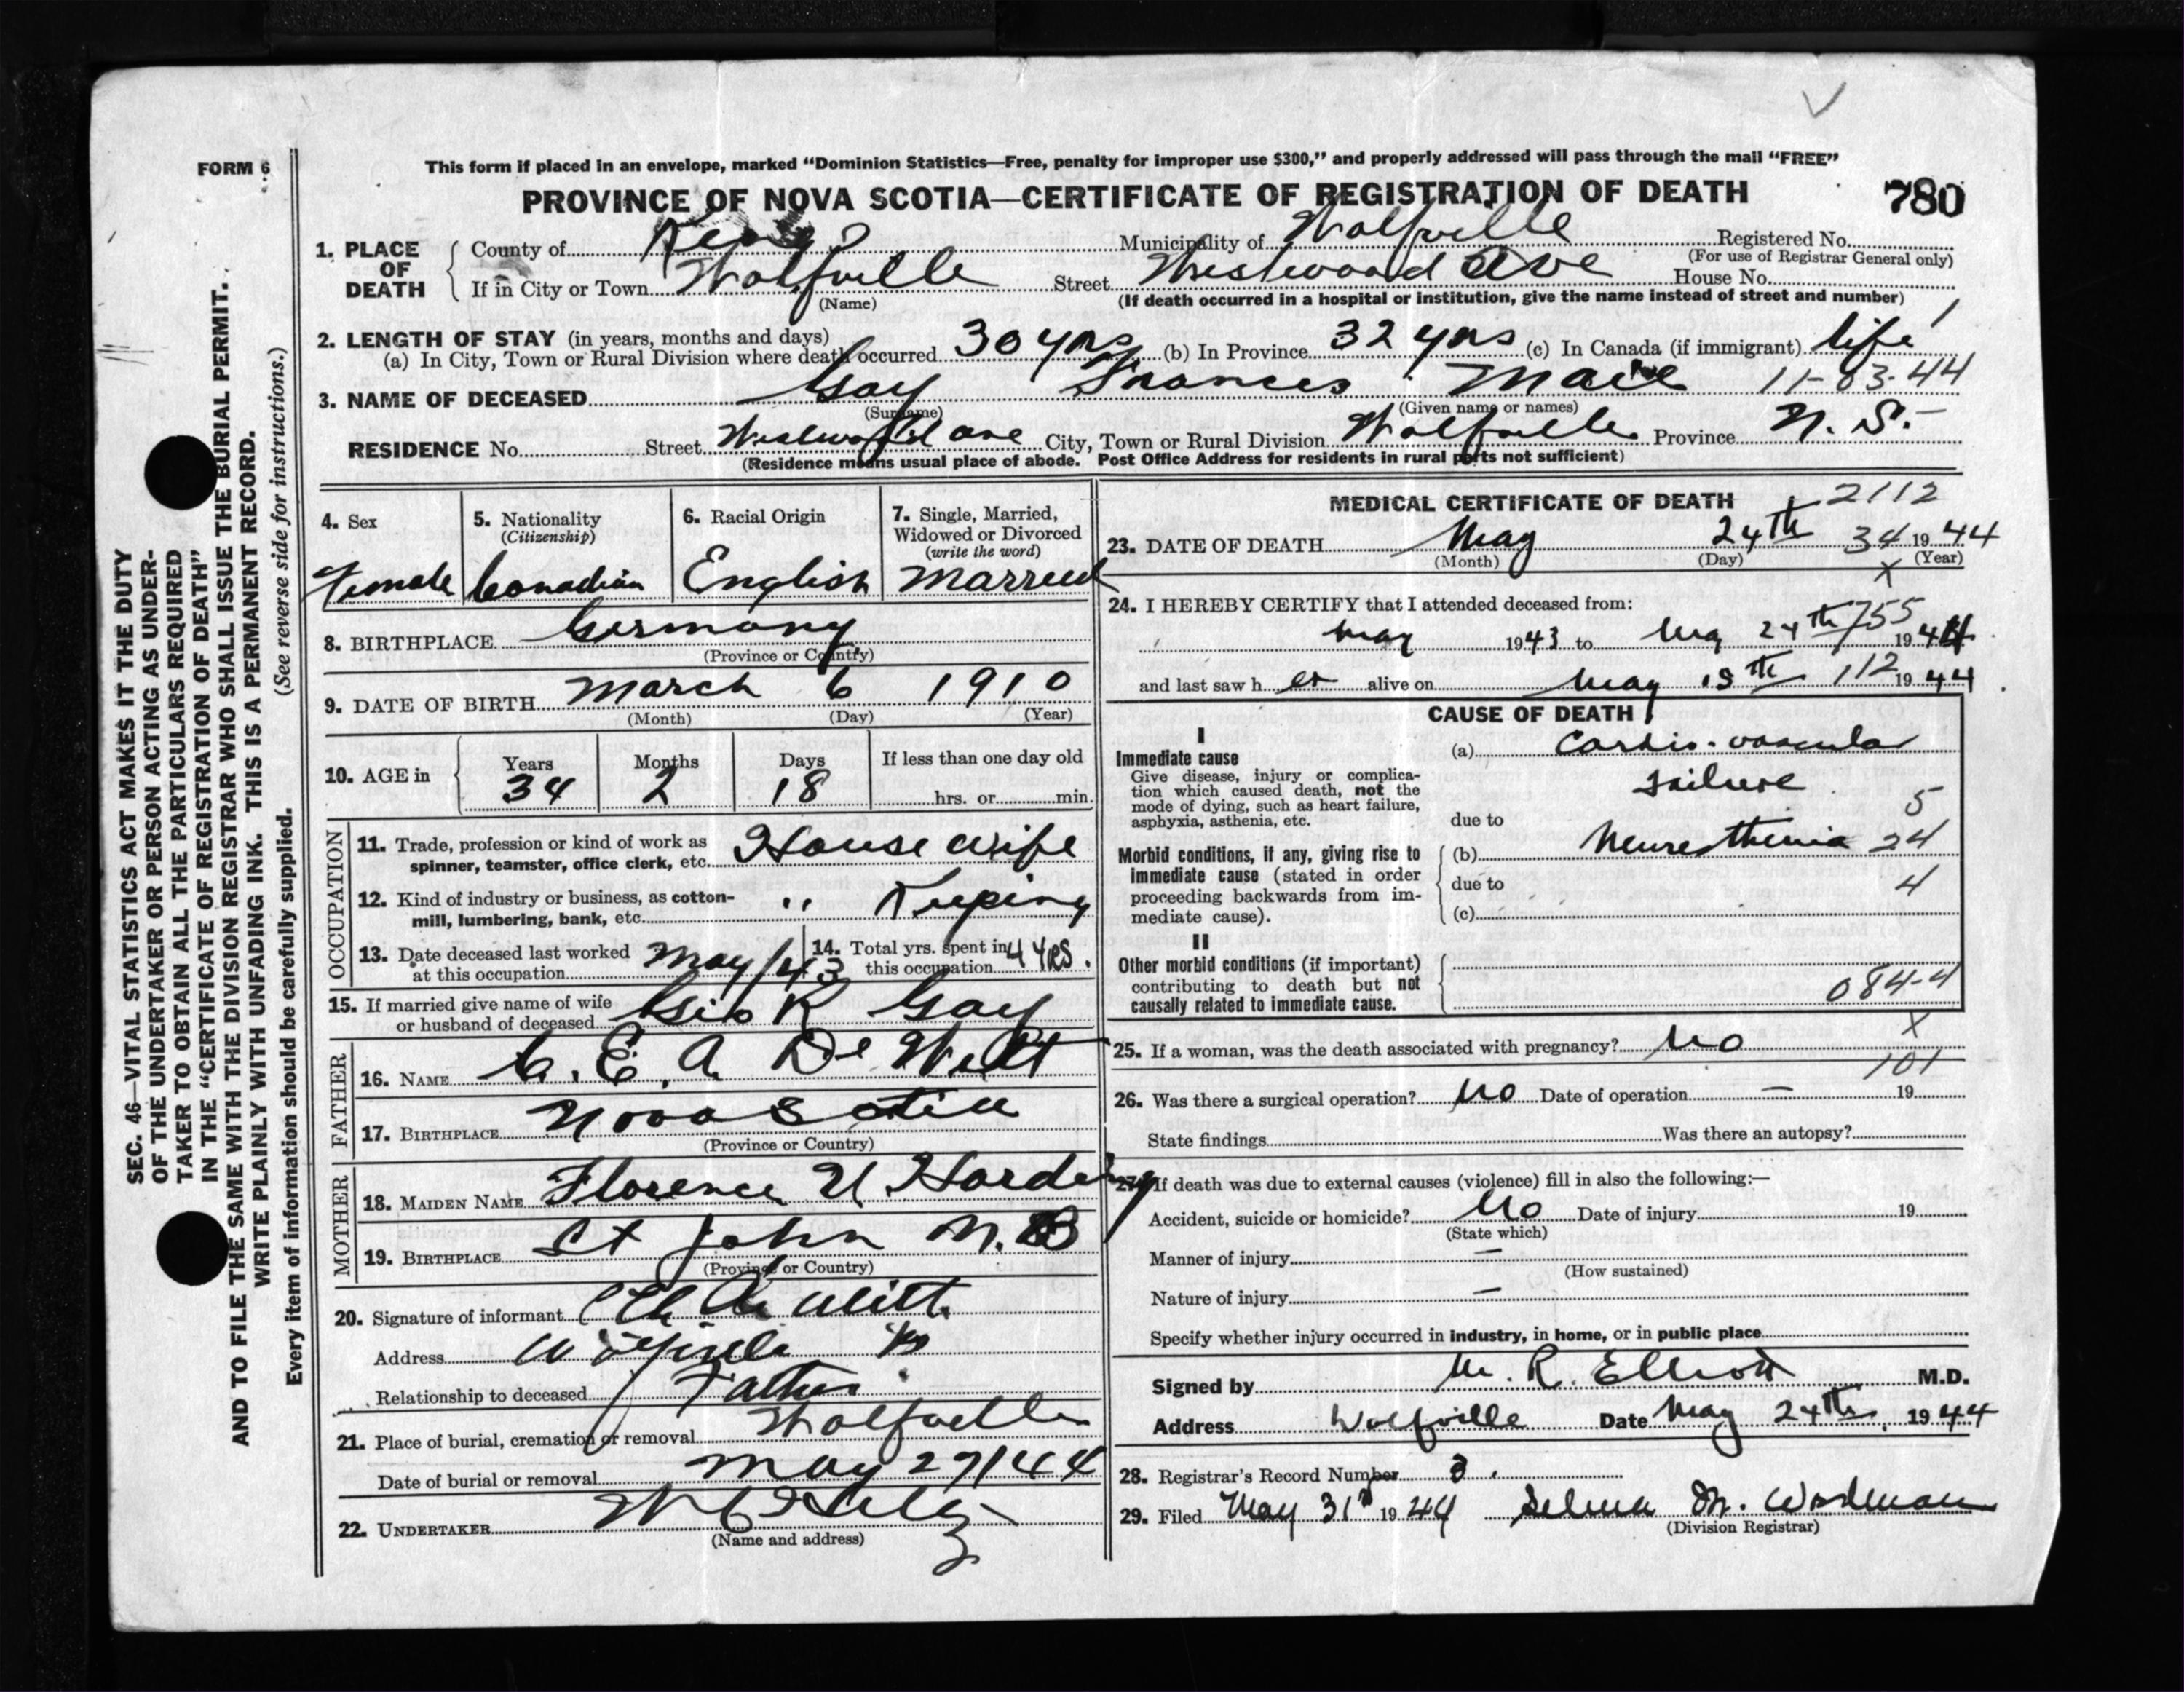 FORM 6
This form if placed in an envelope, marked “Dominion Statistics—Free, penalty for improper use $300,” and properly addressed will pass through the mail “FREE”
PROVINCE OF NOVA SCOTIA—CERTIFICATE OF REGISTRATION OF DEATH 780
1. PLACE OF DEATH
County of Kings Municipality of Wolfville Registered No.
(For use of Registrar General only)
If in City or Town Wolfville Street Westwood Ave House No.
(Name) (If death occurred in a hospital or institution, give the name instead of street and number)
2. LENGTH OF STAY (in years, months and days)
(a) In City, Town or Rural Division where death occurred 30 yrs (b) In Province 32 yrs (c) In Canada (if immigrant) life
3. NAME OF DECEASED Gay Frances 11-03-44
(Surname) (Given name or names)
RESIDENCE No. Street Westwood ave City, Town or Rural Division Wolfville Province N. S.
(Residence means usual place of abode. Post Office Address for residents in rural parts not sufficient)
4. Sex
Female
5. Nationality
(Citizenship)
Canadian
6. Racial Origin
English
7. Single, Married,
Widowed or Divorced
(write the word)
Married
8. BIRTHPLACE Germany
(Province or Country)
9. DATE OF BIRTH March 6 1910
(Month) (Day) (Year)
10. AGE in
Years Months Days If less than one day old
34 2 18 hrs. or min.
OCCUPATION
11. Trade, profession or kind of work as
spinner, teamster, office clerk, etc. House wife
12. Kind of industry or business, as cotton-
mill, lumbering, bank, etc. " Keeping
13. Date deceased last worked
at this occupation May/43
14. Total yrs. spent in
this occupation 4 YRS.
15. If married give name of wife
or husband of deceased Geo R Gay
FATHER
16. NAME C. E. A. De Witt
17. BIRTHPLACE Nova Scotia
(Province or Country)
MOTHER
18. MAIDEN NAME Florence Harding
19. BIRTHPLACE St John N. B
(Province or Country)
20. Signature of informant
Address Wolfville NS
Relationship to deceased Father
21. Place of burial, cremation or removal Wolfville
Date of burial or removal May 27/44
22. UNDERTAKER
(Name and address)
MEDICAL CERTIFICATE OF DEATH 2112
23. DATE OF DEATH May 24th 34 1944
(Month) (Day) (Year)
x
24. I HEREBY CERTIFY that I attended deceased from:
May 1943 to May 24th 755 1944
and last saw her alive on May 112 1944
CAUSE OF DEATH
I
Immediate cause
Give disease, injury or complica-
tion which caused death, not the
mode of dying, such as heart failure,
asphyxia, asthenia, etc.
(a) Cardio-vascular
failure
due to 5
Morbid conditions, if any, giving rise to
immediate cause (stated in order
proceeding backwards from im-
mediate cause).
(b) Neuresthenia 24
due to 4
(c)
II
Other morbid conditions (if important)
contributing to death but not
causally related to immediate cause.
084-4
x
25. If a woman, was the death associated with pregnancy? No
101
26. Was there a surgical operation? No Date of operation — 19
State findings Was there an autopsy?
27. If death was due to external causes (violence) fill in also the following:—
Accident, suicide or homicide? No Date of injury 19
(State which)
Manner of injury —
(How sustained)
Nature of injury —
Specify whether injury occurred in industry, in home, or in public place
Signed by M. R. Elliott M.D.
Address Wolfville Date May 24th, 1944
28. Registrar's Record Number 3.
29. Filed May 31 1944 Selma M. Woodman
(Division Registrar)
SEC. 46—VITAL STATISTICS ACT MAKES IT THE DUTY
OF THE UNDERTAKER OR PERSON ACTING AS UNDER-
TAKER TO OBTAIN ALL THE PARTICULARS REQUIRED
IN THE “CERTIFICATE OF REGISTRATION OF DEATH”
AND TO FILE THE SAME WITH THE DIVISION REGISTRAR WHO SHALL ISSUE THE BURIAL PERMIT.
WRITE PLAINLY WITH UNFADING INK. THIS IS A PERMANENT RECORD.
Every item of information should be carefully supplied. (See reverse side for instructions.)